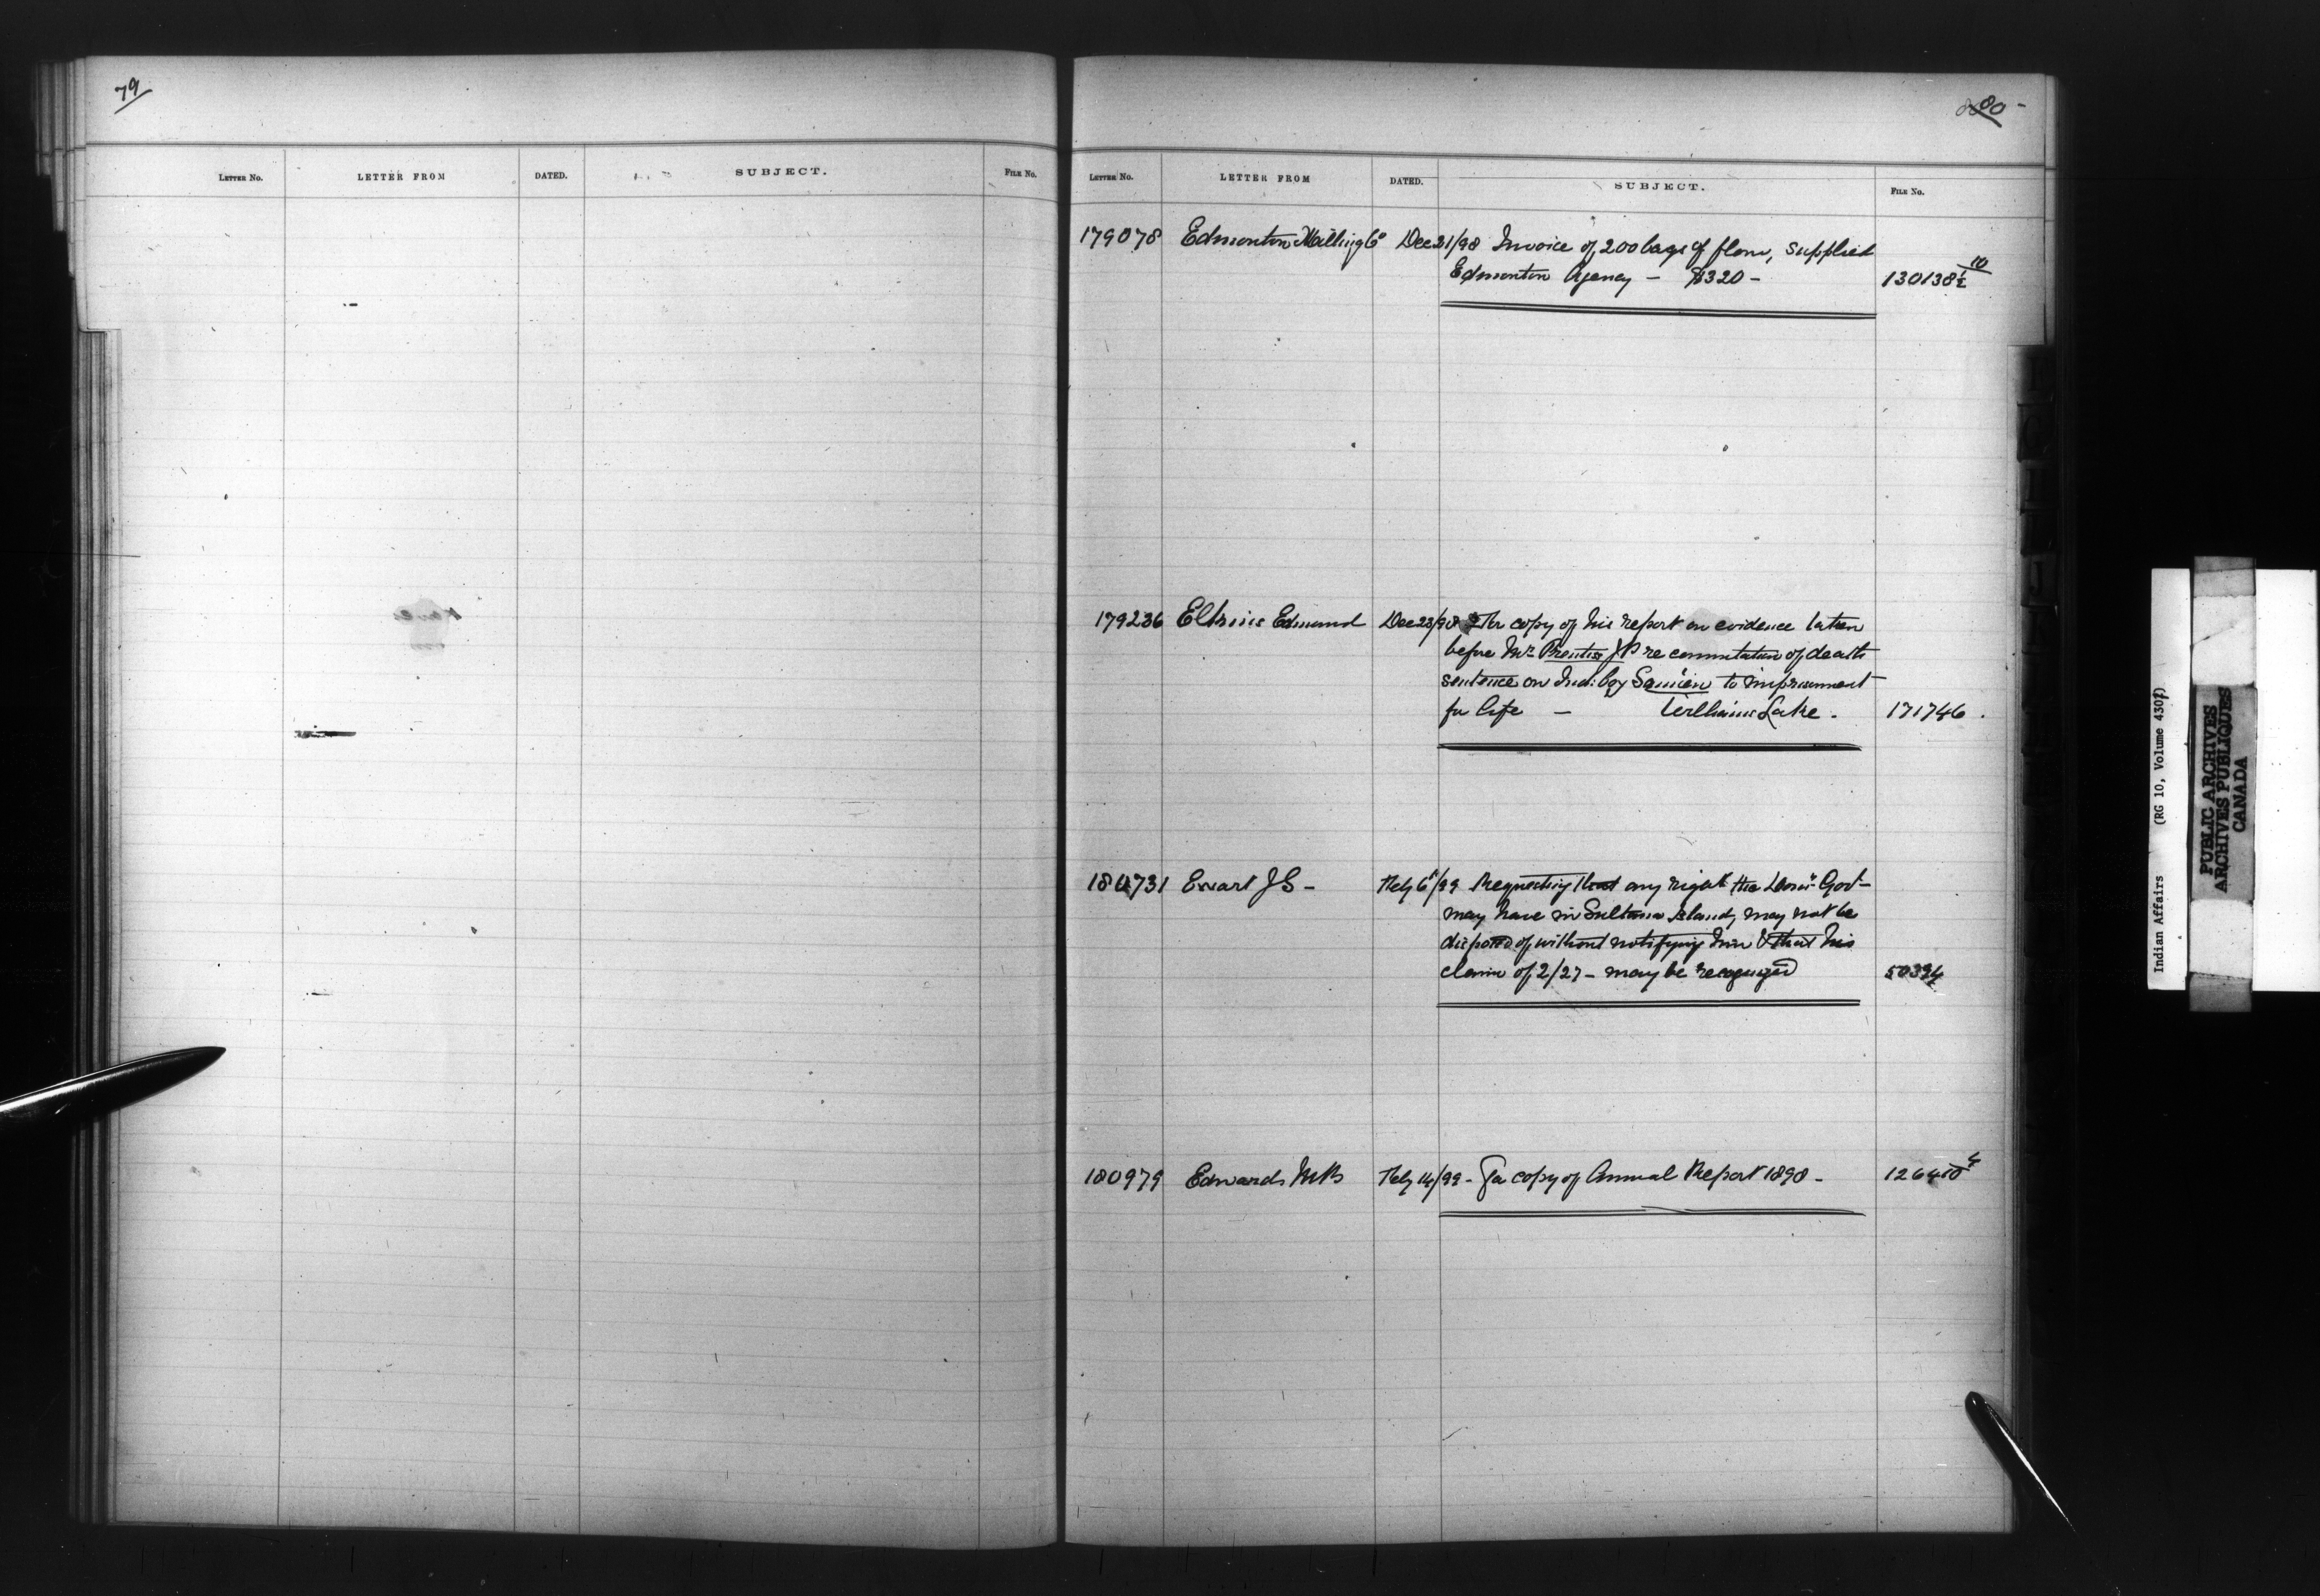 79
80 -
LETTER NO. LETTER FROM DATED. SUBJECT. FILE NO.
LETTER NO. LETTER FROM DATED. SUBJECT. FILE NO.
179078 Edmonton Milling Co Dec 21/98 Invoice of 200 bags of flour, supplied
Edmonton Agency - $320 - 130138½ 10
179236 Edmund Dec 23/98 copy of his report on evidence taken
before Mr Prentiss JP re commutation of death
sentence on Ind: boy Samien to imprisonment
for life - Williams Lake. 171746.
180731 Ewart JS - Feby 6/99 Requesting that any right the Domn Govt
may have in Sultana Island, may not be
disposed of without notifying him & that his
claim of 2/27 - may be recognized 50394
180979 Edwards Feby 14/99 - For copy of Annual Report 1898 - 126410 4
Indian Affairs (RG 10, Volume 4307)
PUBLIC ARCHIVES
ARCHIVES PUBLIQUES
CANADA